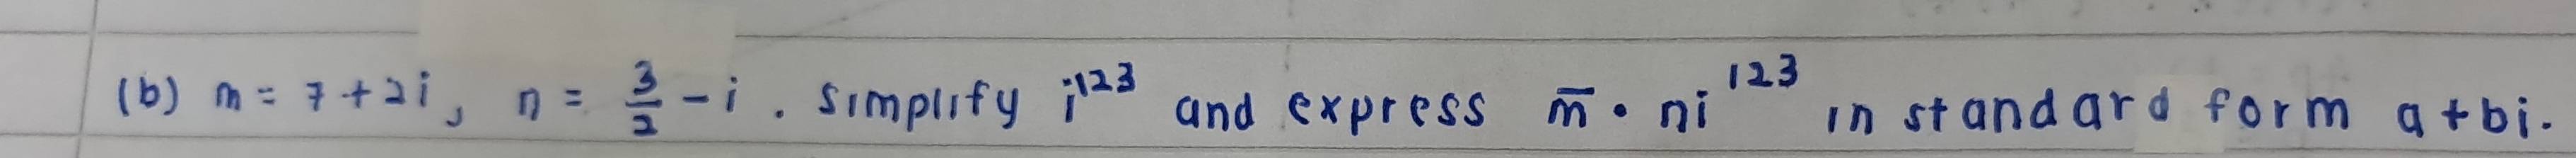 (b) m = 7 + 2i, n = 3/2 - i. simplify i¹²³ and express m̅ • ni¹²³ in standard form a + bi.